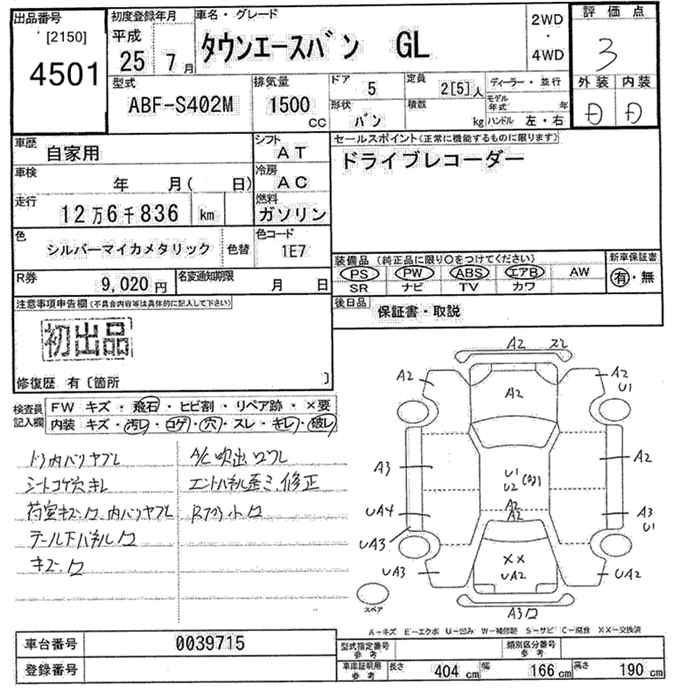 出品番号 初度登録年月 車名・グレード 2WD ・ 4WD 評価点
[2150] 平成
4501 25年 7月 タウンエースバン GL 3
型式 排気量 ドア 5 定員 2[5]人 ディーラー・並行 外装 内装
ABF-S402M 1500 CC 形状 バン 積数 kg モデル年式 年 ハンドル 左・右 D D
車歴 自家用 シフト AT セールスポイント(正常に機能するものに限ります)
車検 年 月( 日) 冷房 AC ドライブレコーダー
走行 12万6千836 km 燃料 ガソリン
色 シルバーマイカメタリック 色替 色コード 1E7 装備品 (純正品に限り○をつけてください) 新車保証書
R券 9,020円 名変通知期限 月 日 PS PW ABS エアB AW 有・無
SR ナビ TV カワ
注意事項申告欄(不具合内容等は具体的に記入して下さい) 後日品 保証書・取説
初出品
修復歴 有〔箇所 〕
検査員記入欄 FW キズ・飛石・ヒビ割・リペア跡・×要
内装 キズ・汚レ・コゲ・穴・スレ・キレ・破レ
ドリ内バリヤブレ A/C吹出口フレ
シートコゲ穴キレ
荷室キズ・ロ、内バリヤブレ
テール下パネルロ
キズ・ロ
A2
A2 A2 U1
A2
A3 U1 U2 A2
A2
UA4 A2 A3 U1
UA3
UA3 XX UA2 UA2
スペア A3
A-キズ E-エクボ U-凹み W-補修跡 S-サビ C-腐食 XX-交換済
車台番号 0039715 型式指定番号 参考 類別区分番号 参考
登録番号 車庫証明用 参考 長さ 404 cm 幅 166 cm 高さ 190 cm